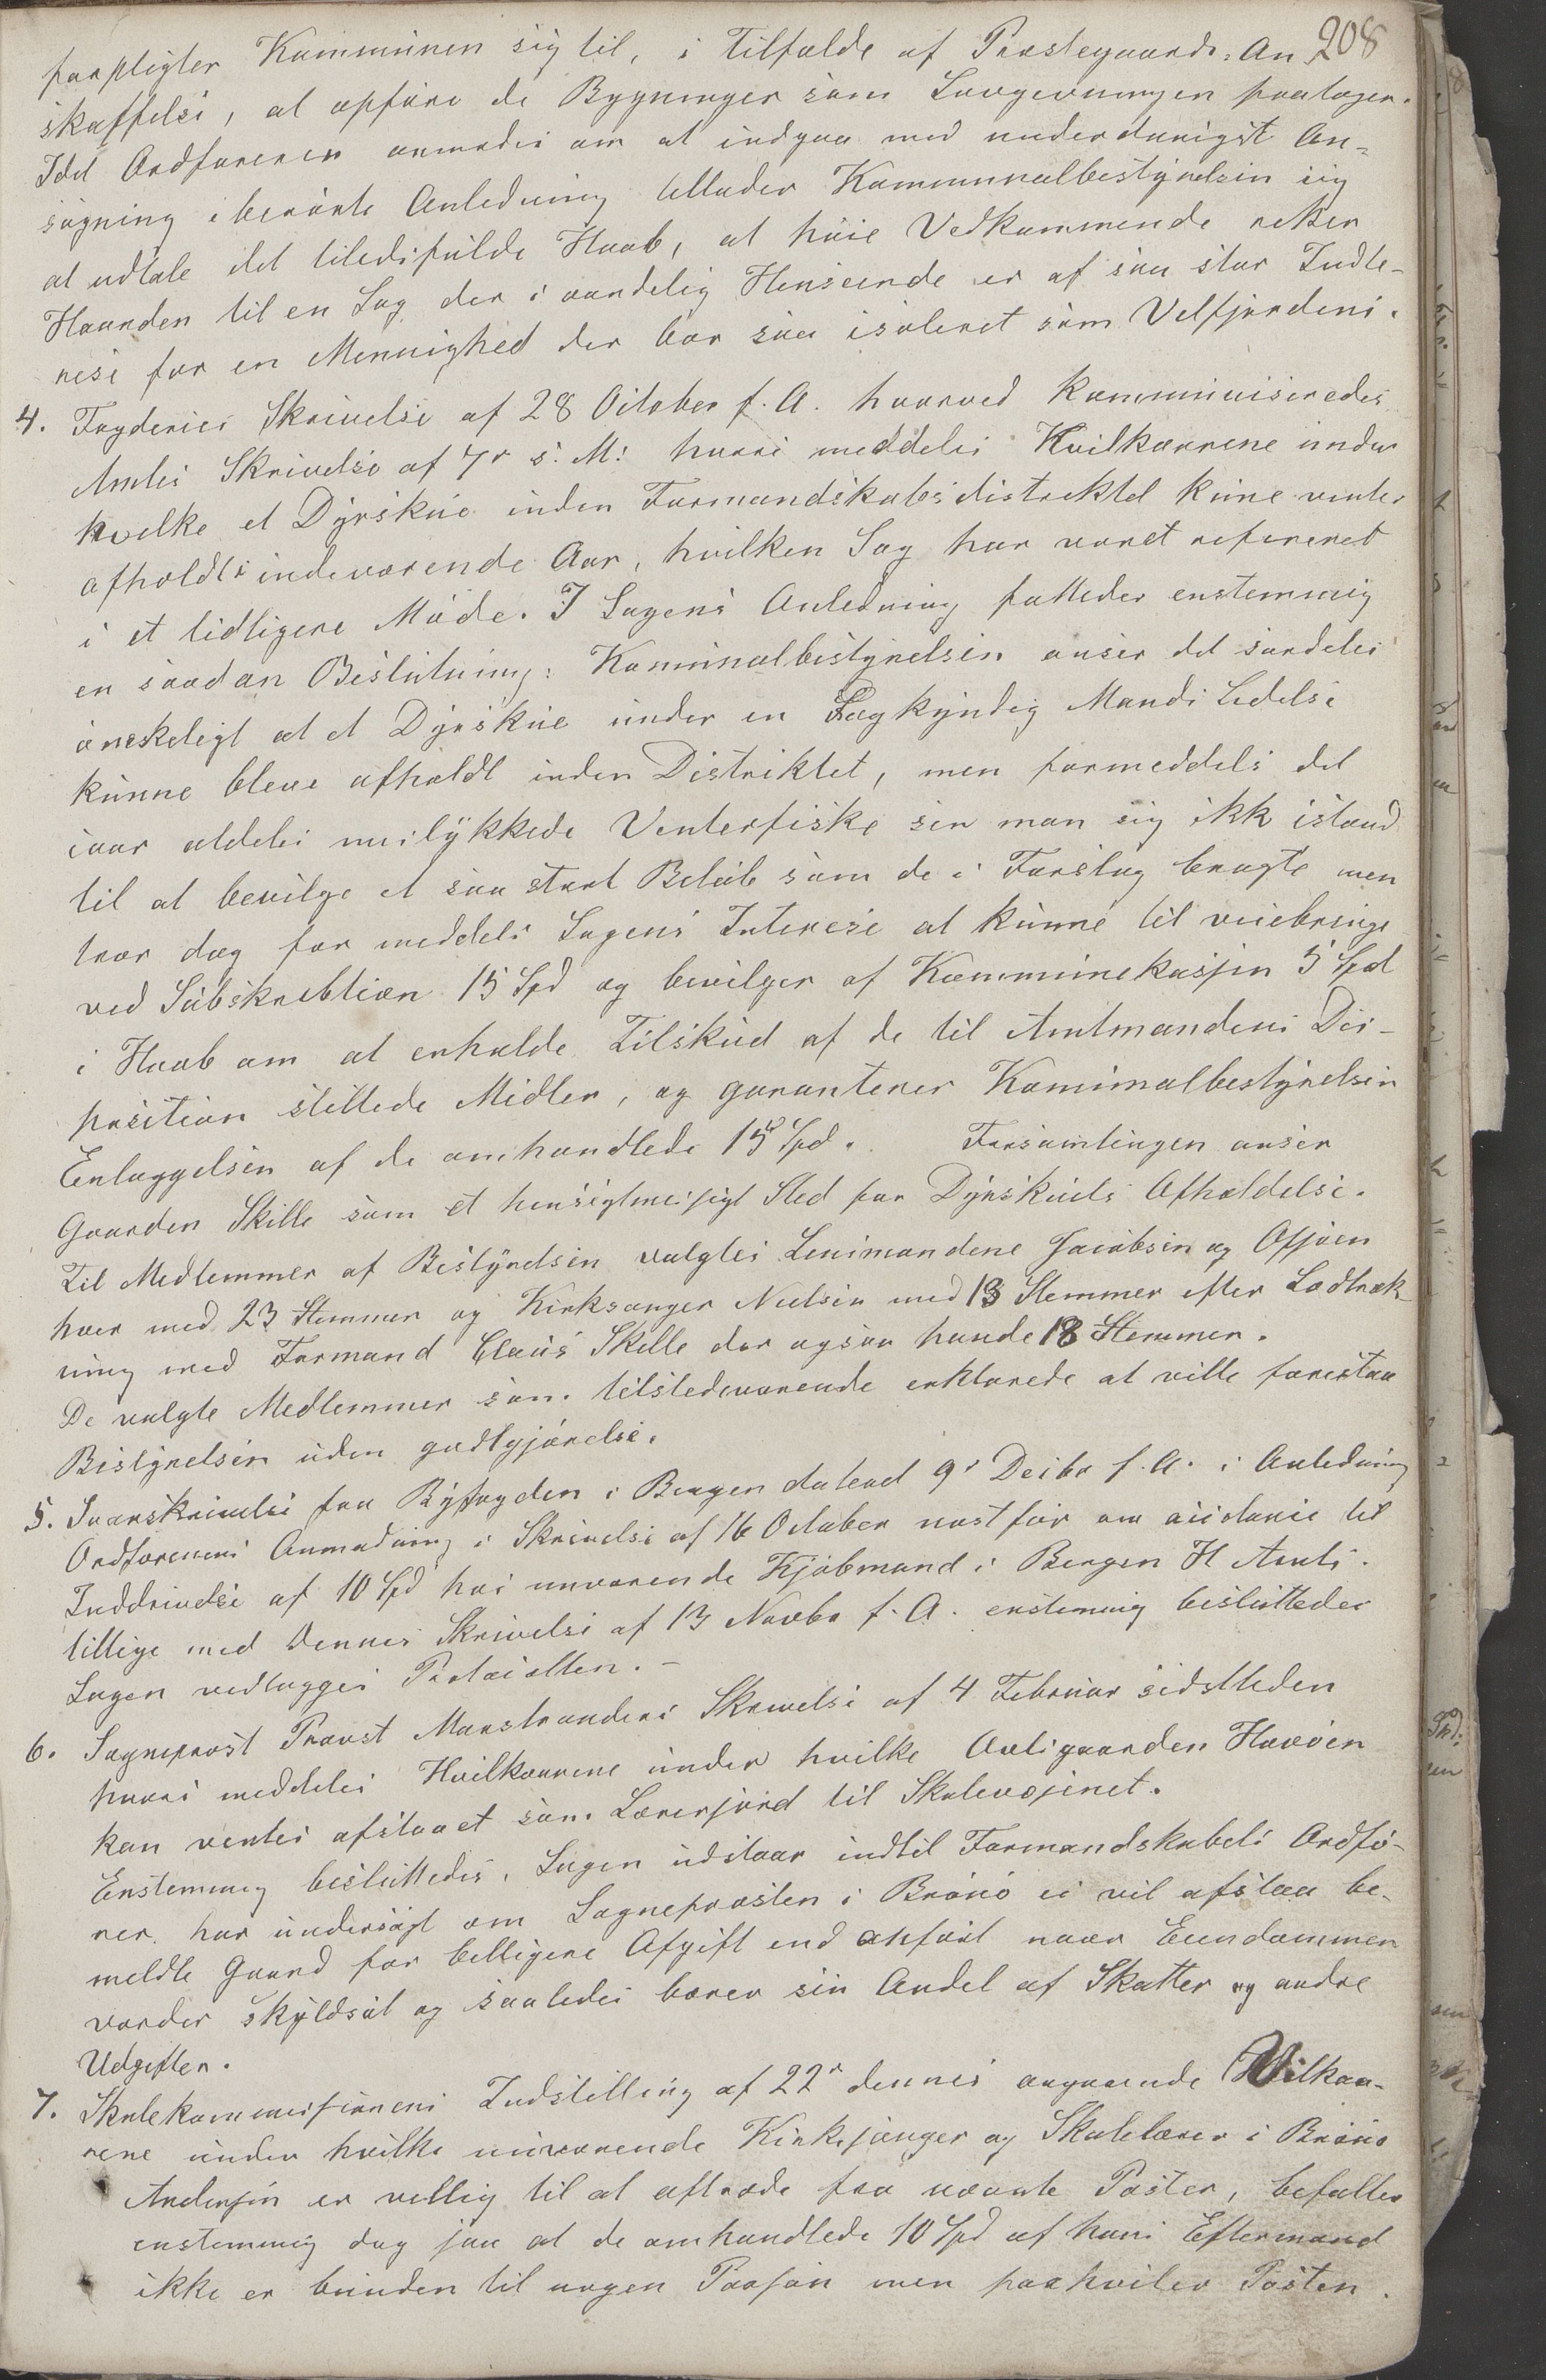 208
forpligter Kommunen sig til, i Tilfælde af Præstegaards-An
skaffelse, at opføre de Bygninger som Lovgivningen paalægger.
Idet Ordføreren anmodes om at indgaa med underdanigst An-
søgning i berørte Anledning tillader Kommunalbestyrelsen sig
at udtale det tilidsfulde Haab, at høie Vedkommende rekker
Haanden til en Sag der i aandelig Henseende er af saa stor Inte-
resse for en Menighed der bor saa isoleret som Velfjordens.
4. Fogderies Skrivelse af 28 October f. A. hvorved kommuniseredes
Amtes Skrivelse af 7r s. M: hvori meddeles Hvilkaarene under
hvelke et Dyrskue inden Formandskabsdistriktet kune ventes
afholdt indeværende Aar, hvilken Sag har været refereret
i et tidligere Møde. I Sagens Anledning fattedes enstemmig
en saadan Beslutning: Kommunalbestyrelsen anser det særdeles
ønskeligt at et Dyrskue under en Sagkyndig Mands Ledelse
kunne bleve afholdt inden Distriktet, men formeddels det
iaar aldeles mislykkede Venterfiske ser man sig ikk istand
til at bevilge et saa stort Beløb som de i Forslag bragte men
tror dog for meddels Sagens Interesse at kunne til veiebringe
ved Subskribtion 15 Spd og bevilger af Kommunekassen 5 Spd
i Haab om at erholde Tilskud af de til Amtmandens Dis-
position stillede Midler, og garanterer Kommunalbestyrelsen
Erlæggelsen af de omhandlede 15 Spd. Forsamlingen anser
Gaarden Skille som et hensigtmessigt Sted for Dyrskuets Afholdelse.
Til Medlemmer af Bestyrelsen valgtes Lensmandene Jacobsen og Ofjoen
hver med 23 Stemmer og Kirksanger Nielsen med 18 Stemmer efter Lodtræk-
ning med Formand Claus Skille der ogsaa havde 18 Stemmer.
De valgte Medlemmer som tilstedeværende erklærede at ville forestaa
Bestyrelsen uden godtgjørelse.
5. Svarskrivelse fra Byfogden i Bergen dateret 9r Decbr f. A. i Anledning
Ordførerens Anmodning i Skrivelse af 16 October næst før om assistance til
Inddrivelse af 10 Spd hos nuværende Kjøbmand i Bergen H
tillige med dennes Skrivelse af 13 Novbr f. A. enstemmig besluttedes
Sagen vedlægges Protocollen. –
6. Sognepræst Provst Marstranders Skrivelse af 4 Februar sidstleden
hvori meddeles Hvilkaarene under hvilke Avlsgaarden Havøen
kan ventes afstaaet som Lærerjord til Skolevæsenet.
Enstemmig besluttedes, Sagen udstaar indtil Formandskabets Ordfø-
rer har undersøgt om Sognepræsten i Brønø ei vil afstaa be-
meldte Gaard for billigere Afgift end anført naar Eiendommen
vorder skyldsat og saaledes bærer sin Andel af Skatter og andre
Udgifter.
7. Skolekommissionens Indstilling af 22r dennes angaaende Vilkaa-
rene under hvilke nuværende Kirkesanger og Skolelærer i Brønø
Andersen er vellig til at aftræde fra nævnte Poster, befattes
enstemmig dog saa at de omhandlede 10 Spd af hans Eftermand
ikke er bunden til nogen Person men paahviler Posten.